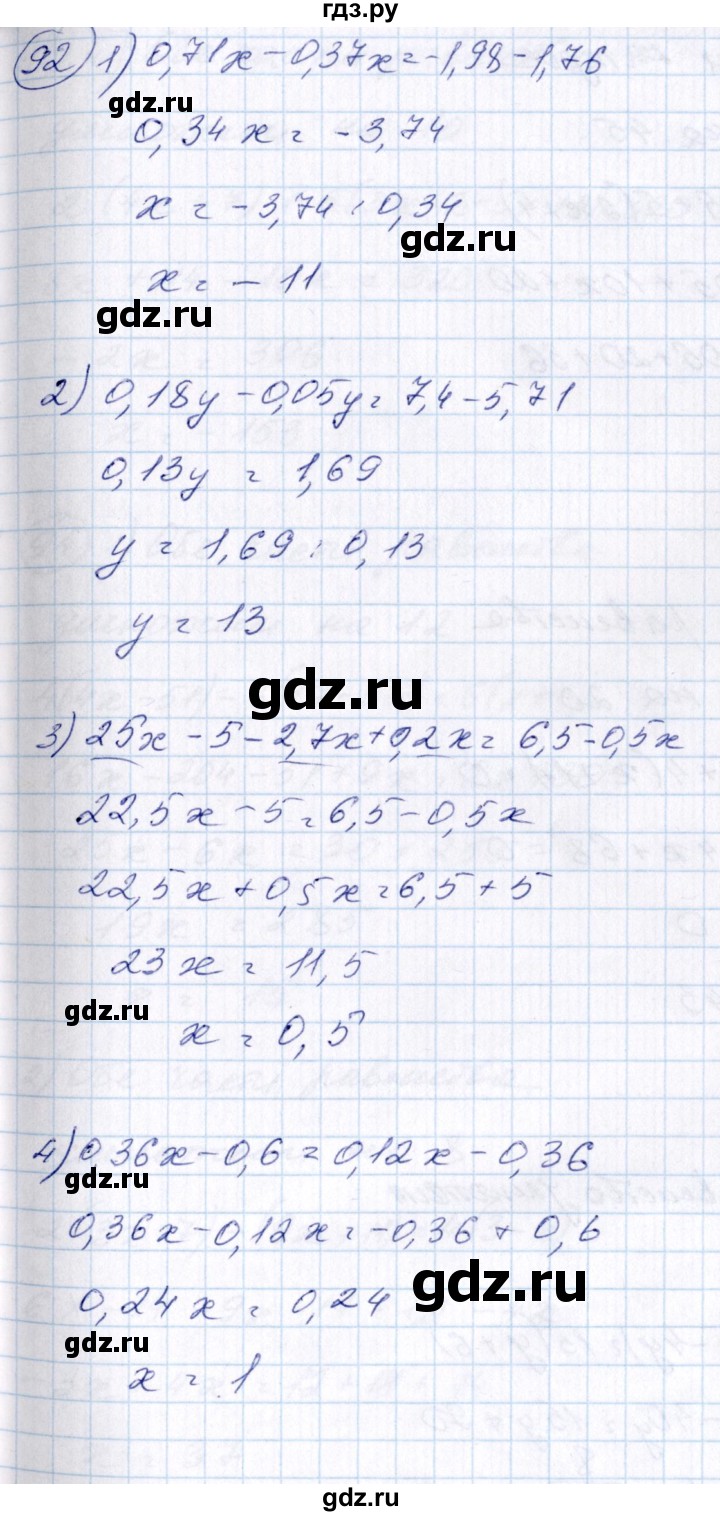 гдз.ру
92) 1) 0,71x - 0,37x = -1,98 - 1,76
gdz.ru
0,34x = -3,74
x = -3,74 : 0,34
gdz.ru
x = -11
gdz.ru
2) 0,18y - 0,05y = 7,4 - 5,71
0,13y = 1,69
y = 1,69 : 0,13
y = 13
gdz.ru
3) 25x - 5 - 2,7x + 0,2x = 6,5 - 0,5x
22,5x - 5 = 6,5 - 0,5x
22,5x + 0,5x = 6,5 + 5
23x = 11,5
gdz.ru
x = 0,5
4) 0,36x - 0,6 = 0,12x - 0,36
gdz.ru
0,36x - 0,12x = -0,36 + 0,6
gdz.ru
0,24x = 0,24
gdz.ru
x = 1
gdz.ru